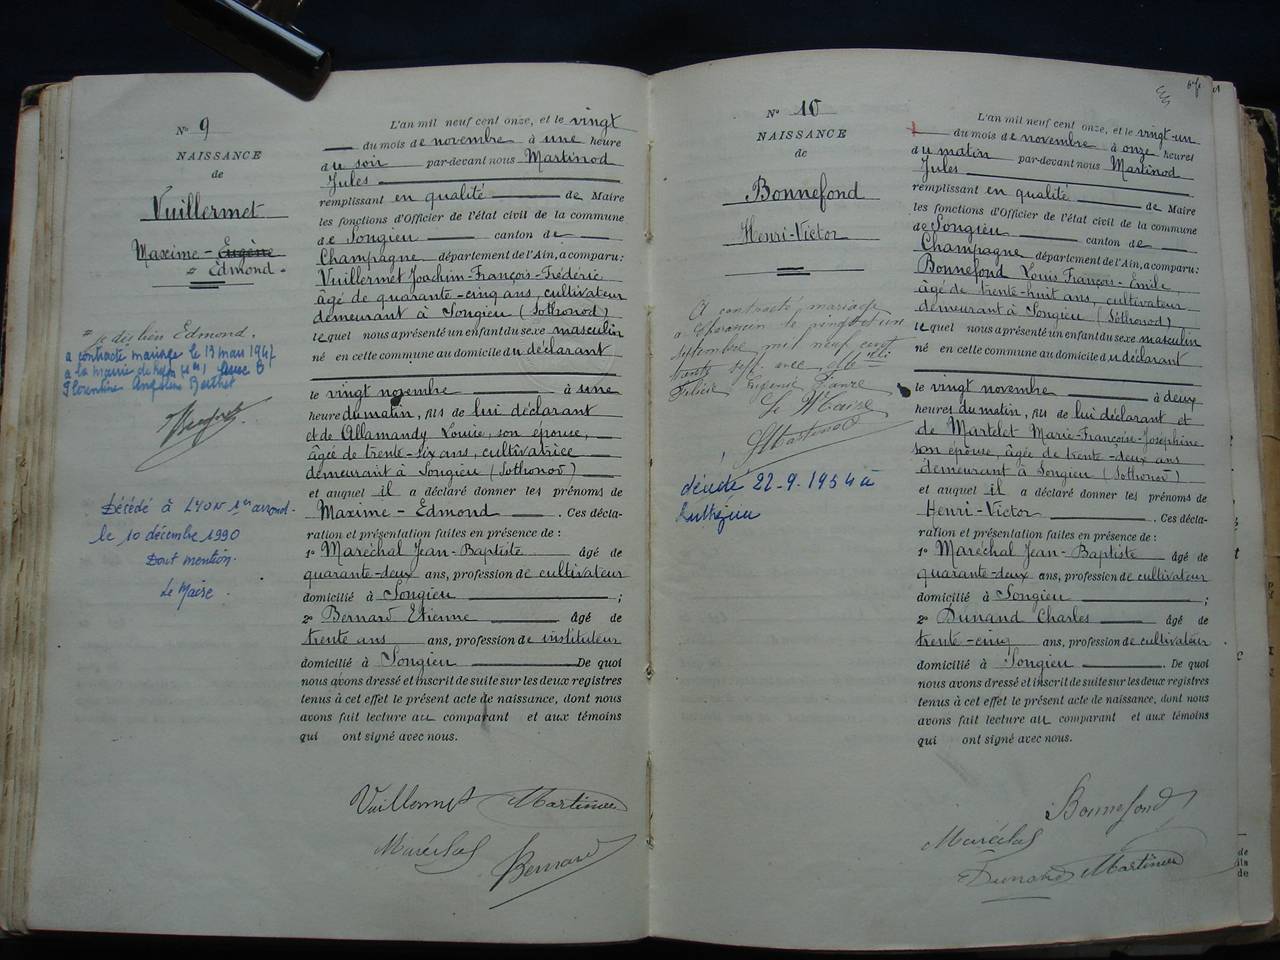 N° 9
NAISSANCE
de
Vuillermet
Maxime - Eugène
" Edmond -
je dis bien Edmond.
a contracté mariage le 13 mars 1947
à la mairie de avec
Florentine Angeline Berthet
Décédé à LYON 1er arrond.
le 10 décembre 1990
Dont mention.
Le Maire.
L'an mil neuf cent onze, et le vingt
du mois de novembre à une heure
du soir par-devant nous Martinod
Jules
remplissant en qualité de Maire
les fonctions d'Officier de l'état civil de la commune
de Songieu canton de
Champagne département de l'Ain, a comparu:
Vuillermet Joachim-François-Frédéric
âgé de quarante-cinq ans, cultivateur
demeurant à Songieu (Sothonod)
lequel nous a présenté un enfant du sexe masculin
né en cette commune au domicile du déclarant
le vingt novembre à une
heure du matin, fils de lui déclarant
et de Allamandy Louise, son épouse,
âgée de trente-six ans, cultivatrice
demeurant à Songieu (Sothonod)
et auquel il a déclaré donner les prénoms de
Maxime - Edmond . Ces décla-
ration et présentation faites en présence de :
1° Maréchal Jean-Baptiste âgé de
quarante-deux ans, profession de cultivateur
domicilié à Songieu ;
2° Bernard Etienne âgé de
trente ans ans, profession de instituteur
domicilié à Songieu De quoi
nous avons dressé et inscrit de suite sur les deux registres
tenus à cet effet le présent acte de naissance, dont nous
avons fait lecture au comparant et aux témoins
qui ont signé avec nous.
Vuillermet Martinod
Maréchal Bernard
N° 10
NAISSANCE
de
Bonnefond
Henri-Victor
A contracté mariage
à le vingt et un
septembre mil neuf cent
trente sept avec Mlle
Félicie Eugénie Favre
Le Maire
JMartinod
décédé 22-9-1954 à
Ruthieu
L'an mil neuf cent onze, et le vingt-un
du mois de novembre à onze heures
du matin par-devant nous Martinod
Jules
remplissant en qualité de Maire
les fonctions d'Officier de l'état civil de la commune
de Songieu canton de
Champagne département de l'Ain, a comparu:
Bonnefond Louis François-Emile
âgé de trente-huit ans, cultivateur
demeurant à Songieu (Sothonod)
lequel nous a présenté un enfant du sexe masculin
né en cette commune au domicile du déclarant
le vingt novembre à deux
heures du matin, fils de lui déclarant et
de Martelet Marie-Françoise-Joséphine
son épouse, âgée de trente-deux ans
demeurant à Songieu (Sothonod)
et auquel il a déclaré donner les prénoms de
Henri-Victor . Ces décla-
ration et présentation faites en présence de :
1° Maréchal Jean-Baptiste âgé de
quarante-deux ans, profession de cultivateur
domicilié à Songieu ;
2° Dunand Charles âgé de
trente-cinq ans, profession de cultivateur
domicilié à Songieu . De quoi
nous avons dressé et inscrit de suite sur les deux registres
tenus à cet effet le présent acte de naissance, dont nous
avons fait lecture au comparant et aux témoins
qui ont signé avec nous.
Bonnefond
Maréchal
Dunand Martinod